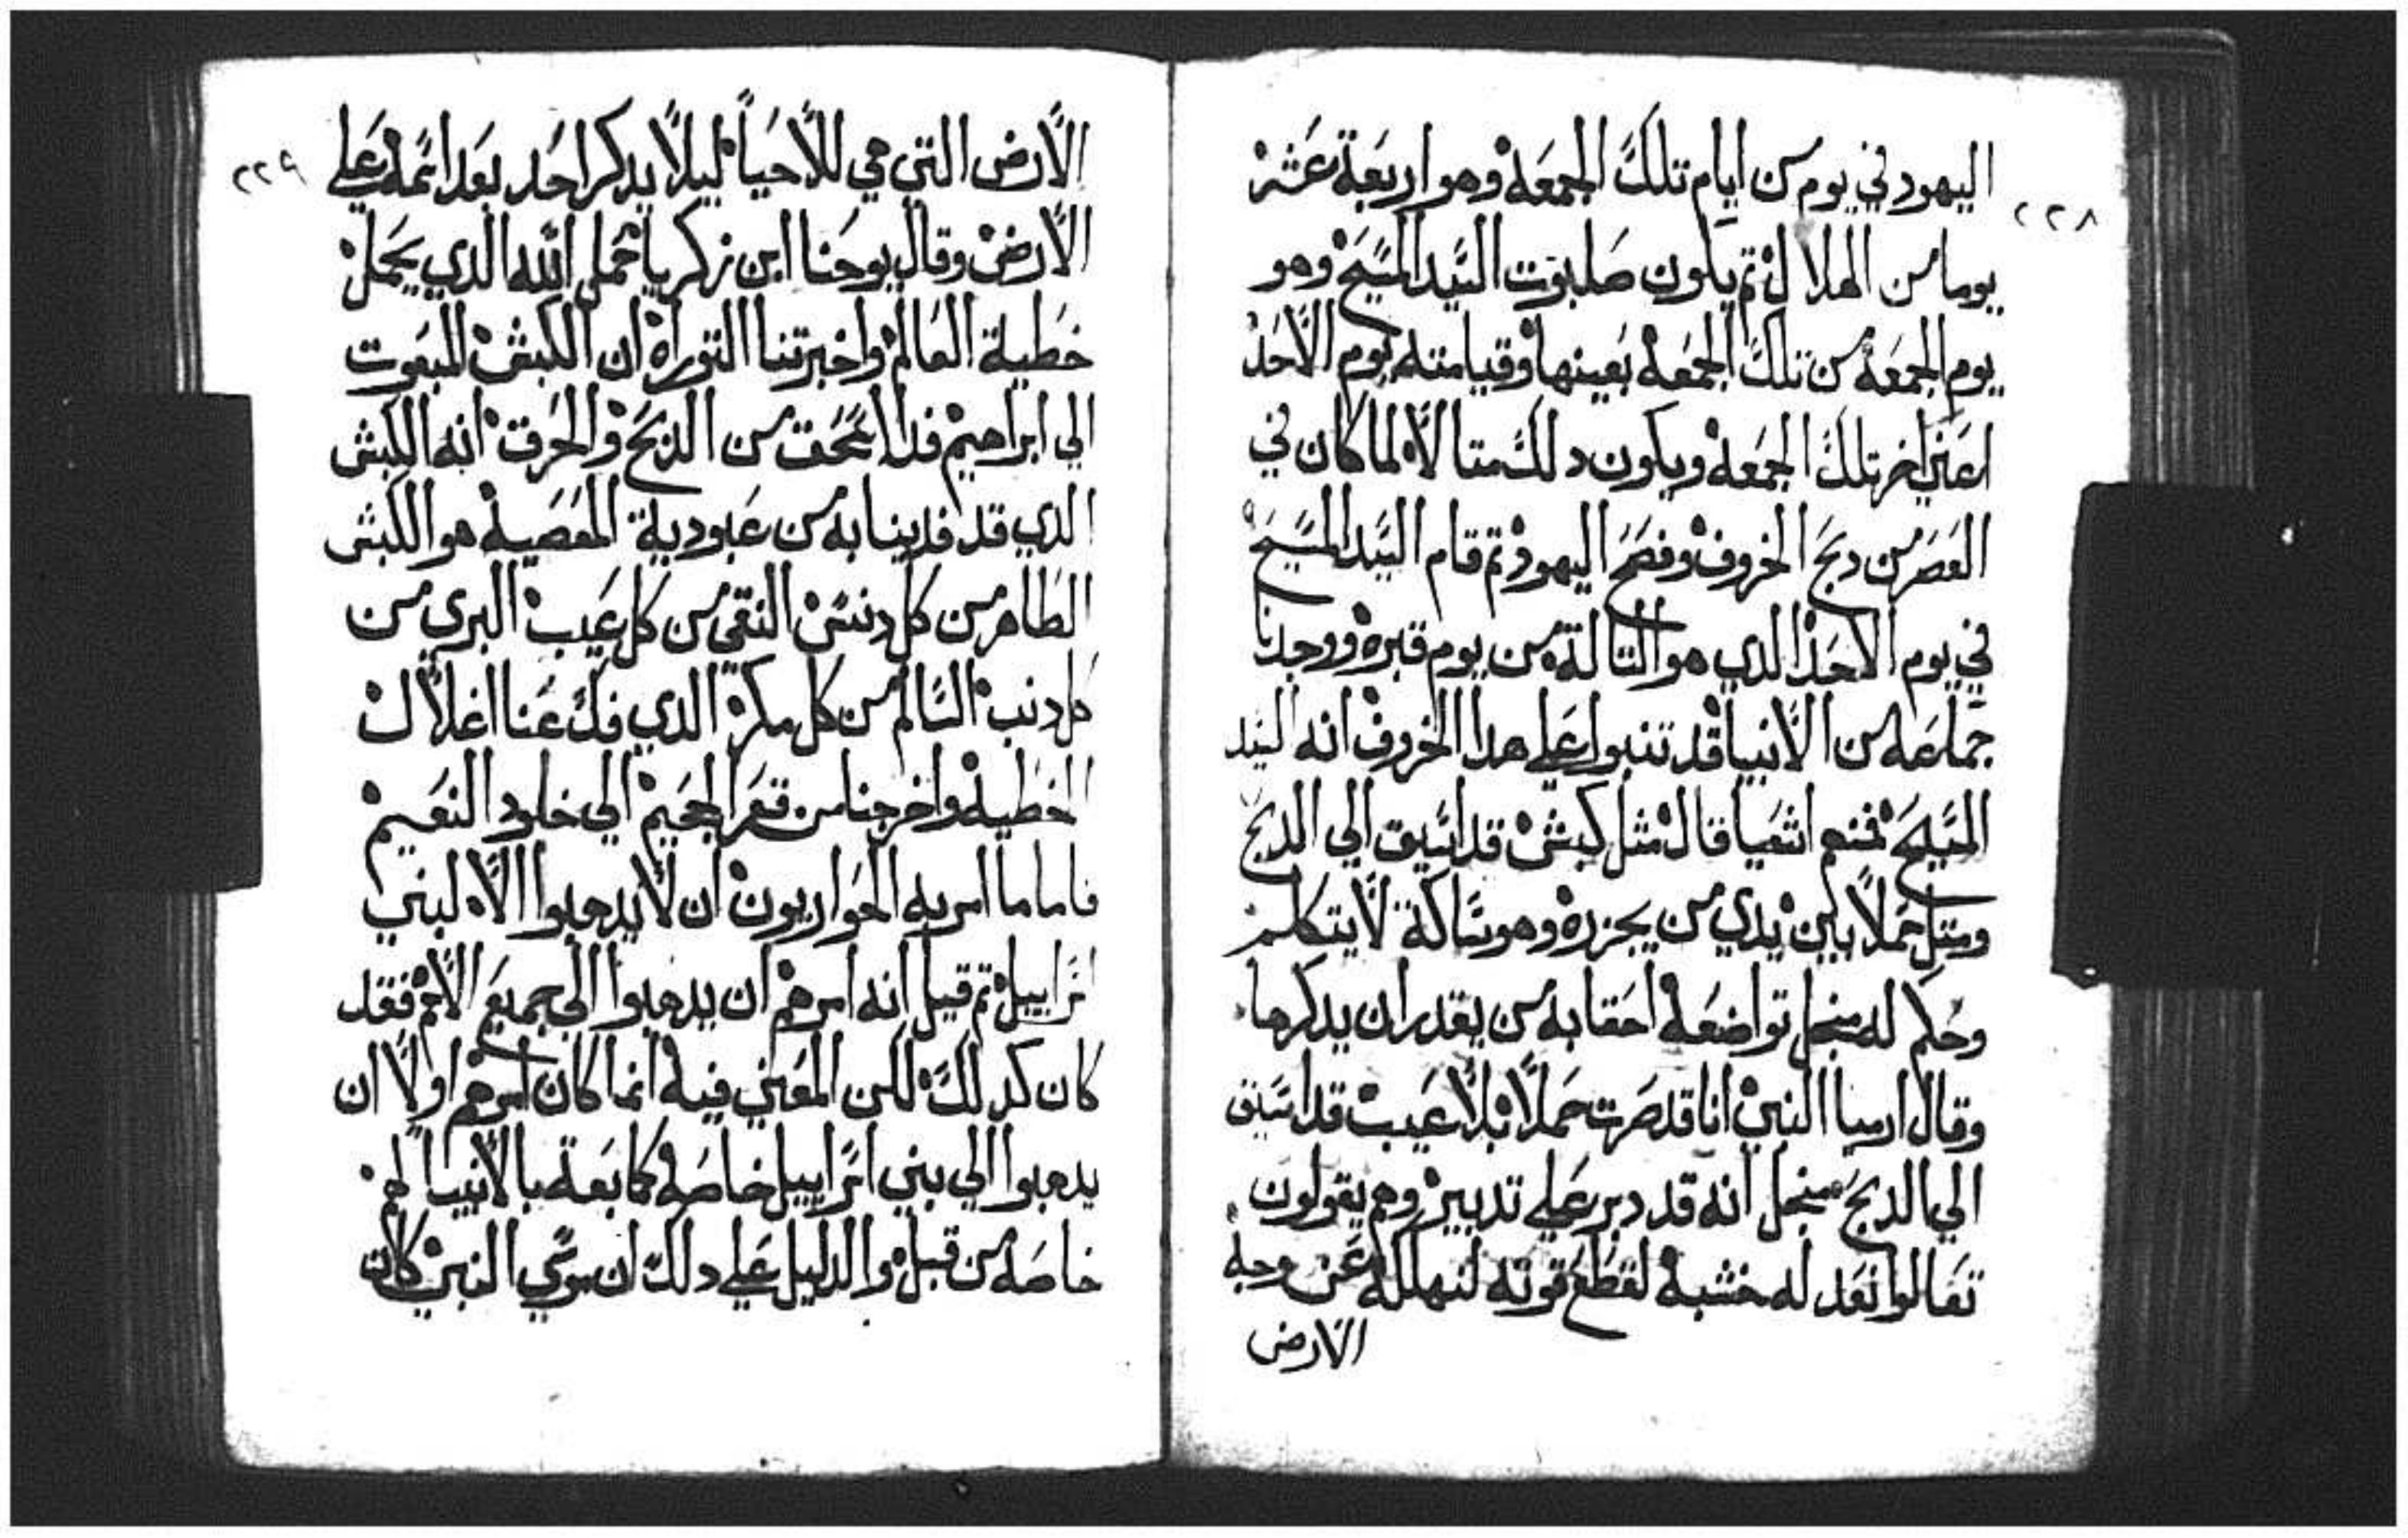 ٢٢٨
اليهود في يوم من ايام تلك الجمعه وهو اربعة عشر
يوما من الهلال ثم يكون صلبوت السيد المسيح وهو
يوم الجمعه من تلك الجمعه بعينها وقيامته يوم الاحد
اعني اخر تلك الجمعه ويكون دلك متالاً لما كان في
العصر من دبح الخروف وفصح اليهود تم قام السيد المسيح
في يوم الاحد الدي هو التالتة من يوم قبره ووجدنا
جماعه من الانبيا قد تنبوا علي هدا الخروف انه السيد
المسيح فمنهم اشعيا قال مثل كبش قد اسيق الي الدبح
ومتل حملاً بين يدي من يجزره وهو ساكة لا يتكلم
وحكم له من تواضعه احقابه من يقدر ان يدكرها
وقال ارميا النبي انا قد صرت حملاً بلا عيب قد اسيق
الي الدبح من انه قد دبر علي تدبير وهم يقولون
تعالوا نعد له خشبه لقطع قوته لنهلكه عن وجه
الارض
٢٢٩
الارض التي هي للاحيا ليلا يدكر احد بعد اسمه علي
الارض وقال يوحنا ابن زكريا حمل الله الدي يحمل
خطية العالم واخبرتنا التوراه ان الكبش المبعوت
الي ابراهيم فدا اسحق من الدبح والحرق انه الكبش
الدي قد فدينا به من عبودية المعصيه هو الكبش
الطاهر من كل دنس النقي من كل عيب البري من
كل دنب السالم من كل مكر الدي فك عنا اغلال
الخطيه واخرجنا من قعر الجحيم الي خلود النعيم
فاما ما امر به الحواريون ان لا يدهبوا الا لبني
اسراييل تم قيل انه امرهم ان يدهبوا الي جميع الامم فقد
كان كدلك لكن المعني فيه انما كان امرهم اولا ان
يدهبوا الي بني اسراييل خاصه كما بعة بالانبيا لهم
خاصه من قبل والدليل علي دلك ان موسي النبي كان